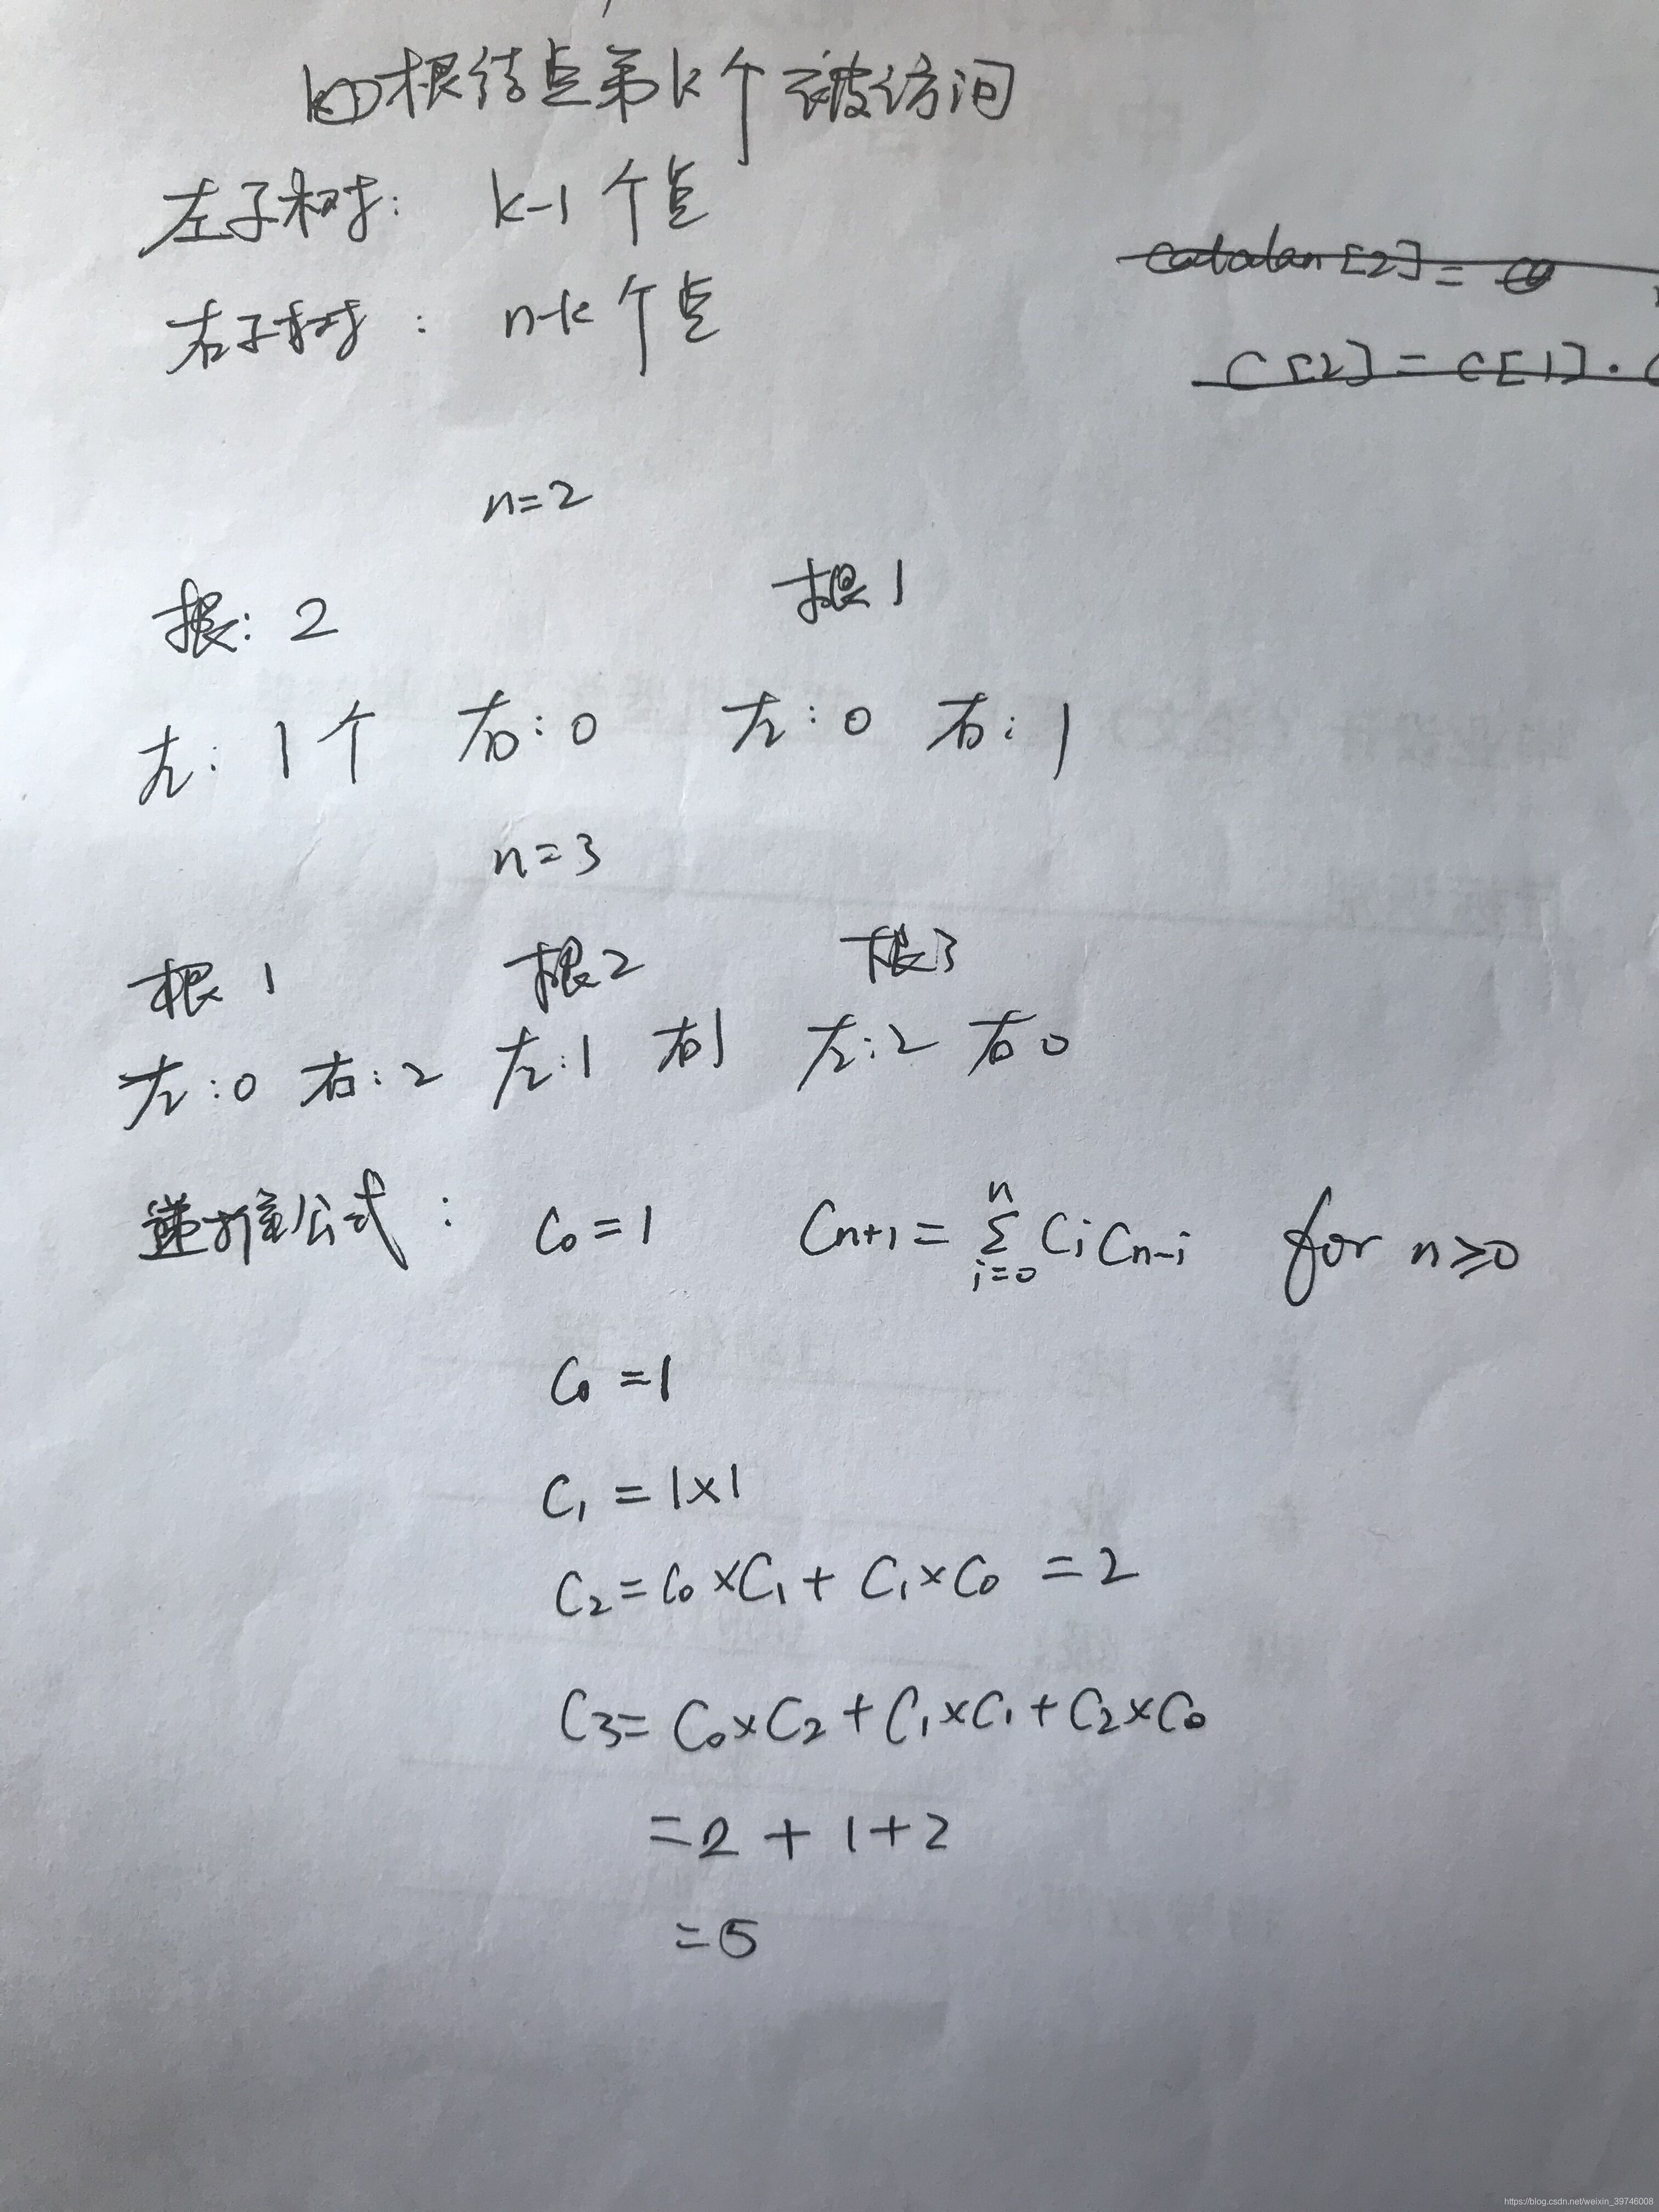 根结点第k个被访问
左子树: k-1个点
右子树: n-k个点
catalan[2]=
C[2]=C[1]·
n=2
根:2 根1
左:1个 右:0 左:0 右:1
n=3
根1 根2 根3
左:0 右:2 左:1 右1 左:2 右0
递推公式: C₀=1 Cₙ₊₁=∑ⁿᵢ₌₀CᵢCₙ₋ᵢ for n≥0
C₀=1
C₁=1×1
C₂=C₀×C₁+C₁×C₀=2
C₃=C₀×C₂+C₁×C₁+C₂×C₀
=2+1+2
=5
https://blog.csdn.net/weixin_39746008